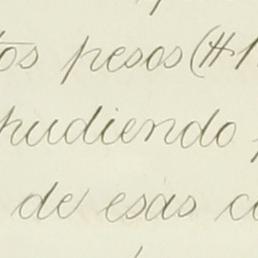 tos pesos (#1
pudiendo
de esas co